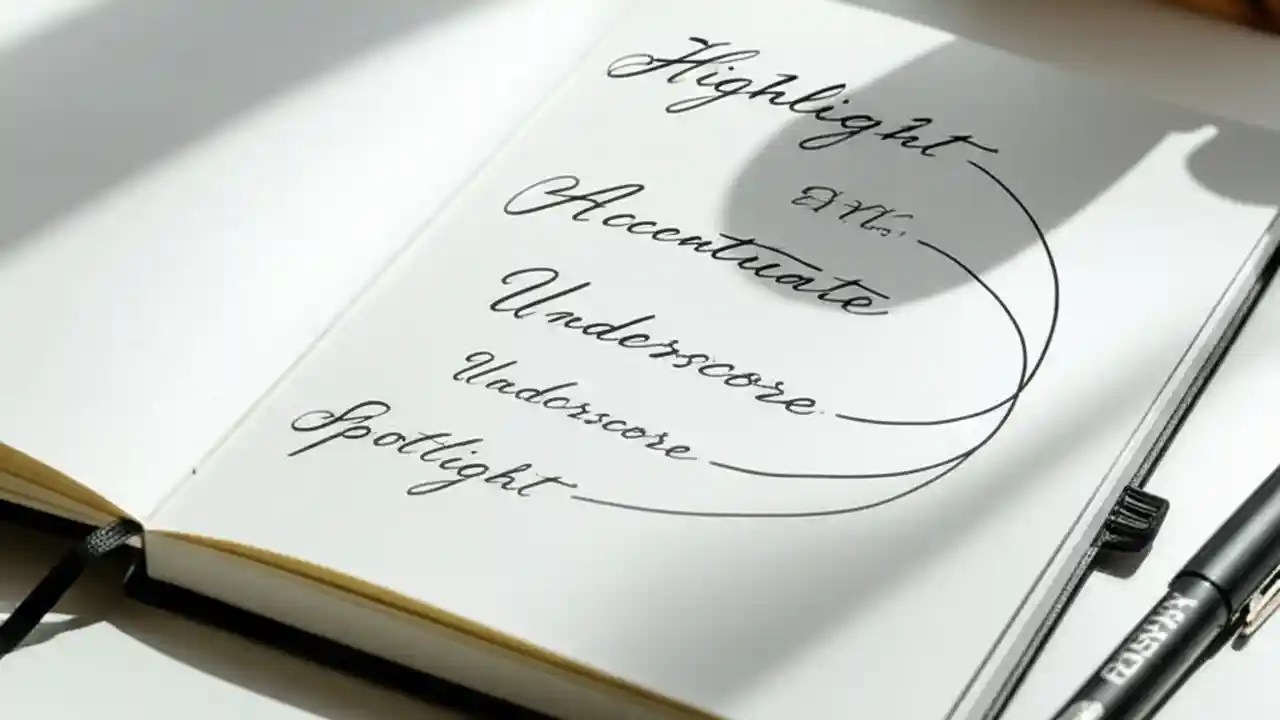 Highlight
Accentuate
Underscore
Underscore
Spotlight